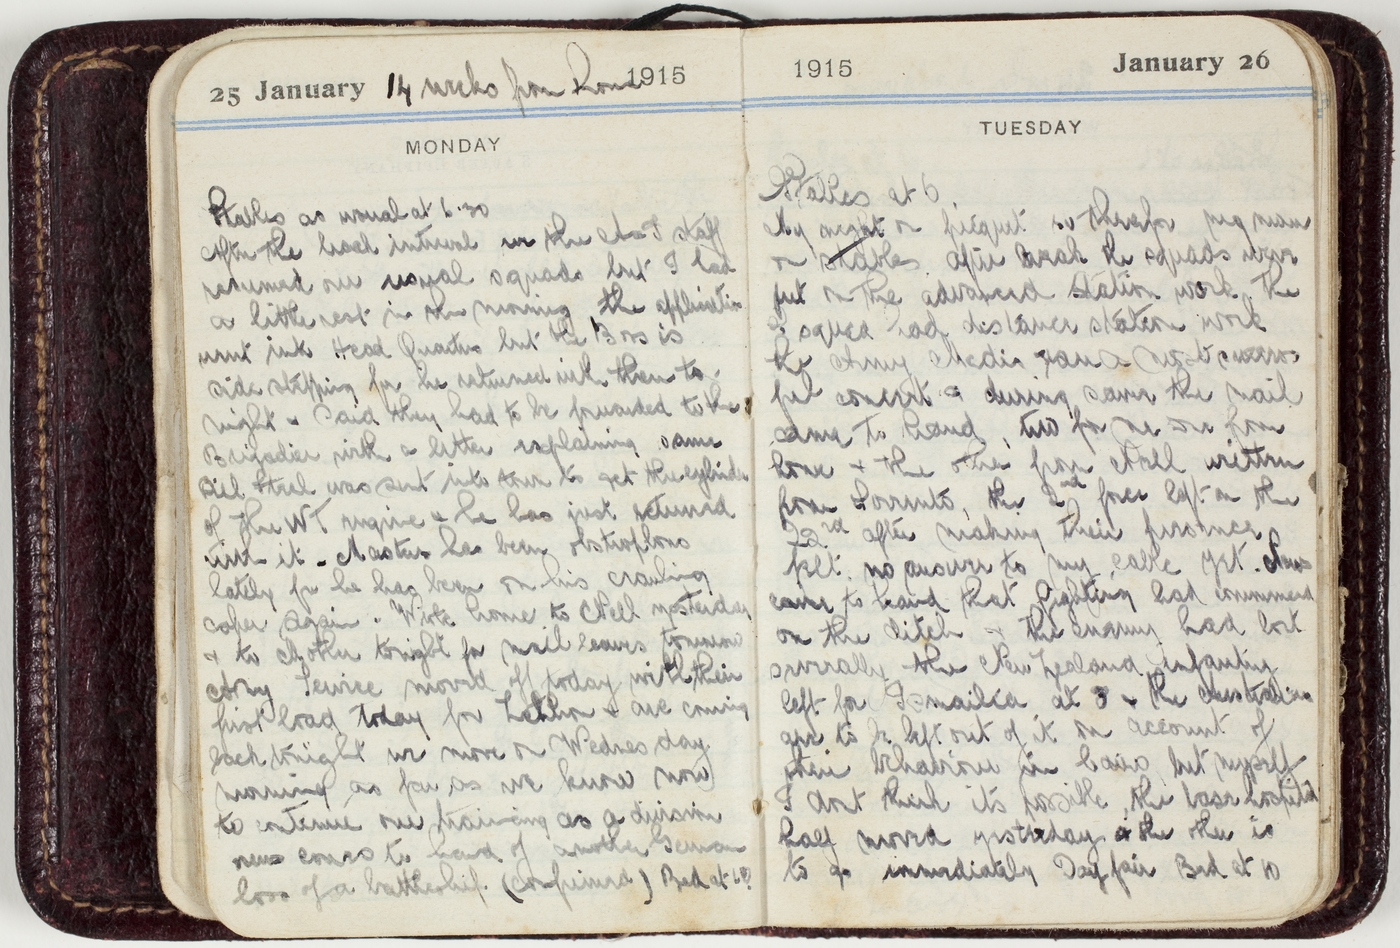 25 January 14 weeks from Home 1915
MONDAY
Stables as usual at 6.30
After the lunch interval we the staff
resumed our usual squads but I had
a little rest in the morning, the application
went into Head Quarters but the Boss is
side stepping for he returned with them to
night & said they had to be forwarded to the
Brigadier with a letter explaining same
Bill Steel was sent into town to get the cylinder
of the WT engine & he has just returned
with it. Masters has been obstroplous
lately for he has been on his crawling
caper again. Wrote home to Nell yesterday
& to Mother tonight for mail leaves tomorrow
Army Service moved off today with their
first load today for & are coming
back tonight we move on Wednesday
morning as far as we know now
to continue our training as a division
news comes to hand of another German
loss of a battleship. (confirmed) Bed at
1915 January 26
TUESDAY
Stables at 6
My night on picquet so therefor no man
on stables. After break the squads were
put on the advanced station work, the
squad had distance station work
the Army Medic gave a most success
ful concert & during same the mail
came to hand, two for me one from
home & the other from Nell written
from Sorrento, the 2nd force left on the
22nd after making their
felt, no answer to my cable yet. News
came to hand that fighting had commenced
on the ditch & the enemy had lost
severally the New Zealand infantry
left for Ismailia at 8 & the Australians
are to be left out of it on account of
their behaviour in Cairo, but myself
I dont think its possible, the base hospital
half moved yesterday & the other is
to go immediately Day fair Bed at 10